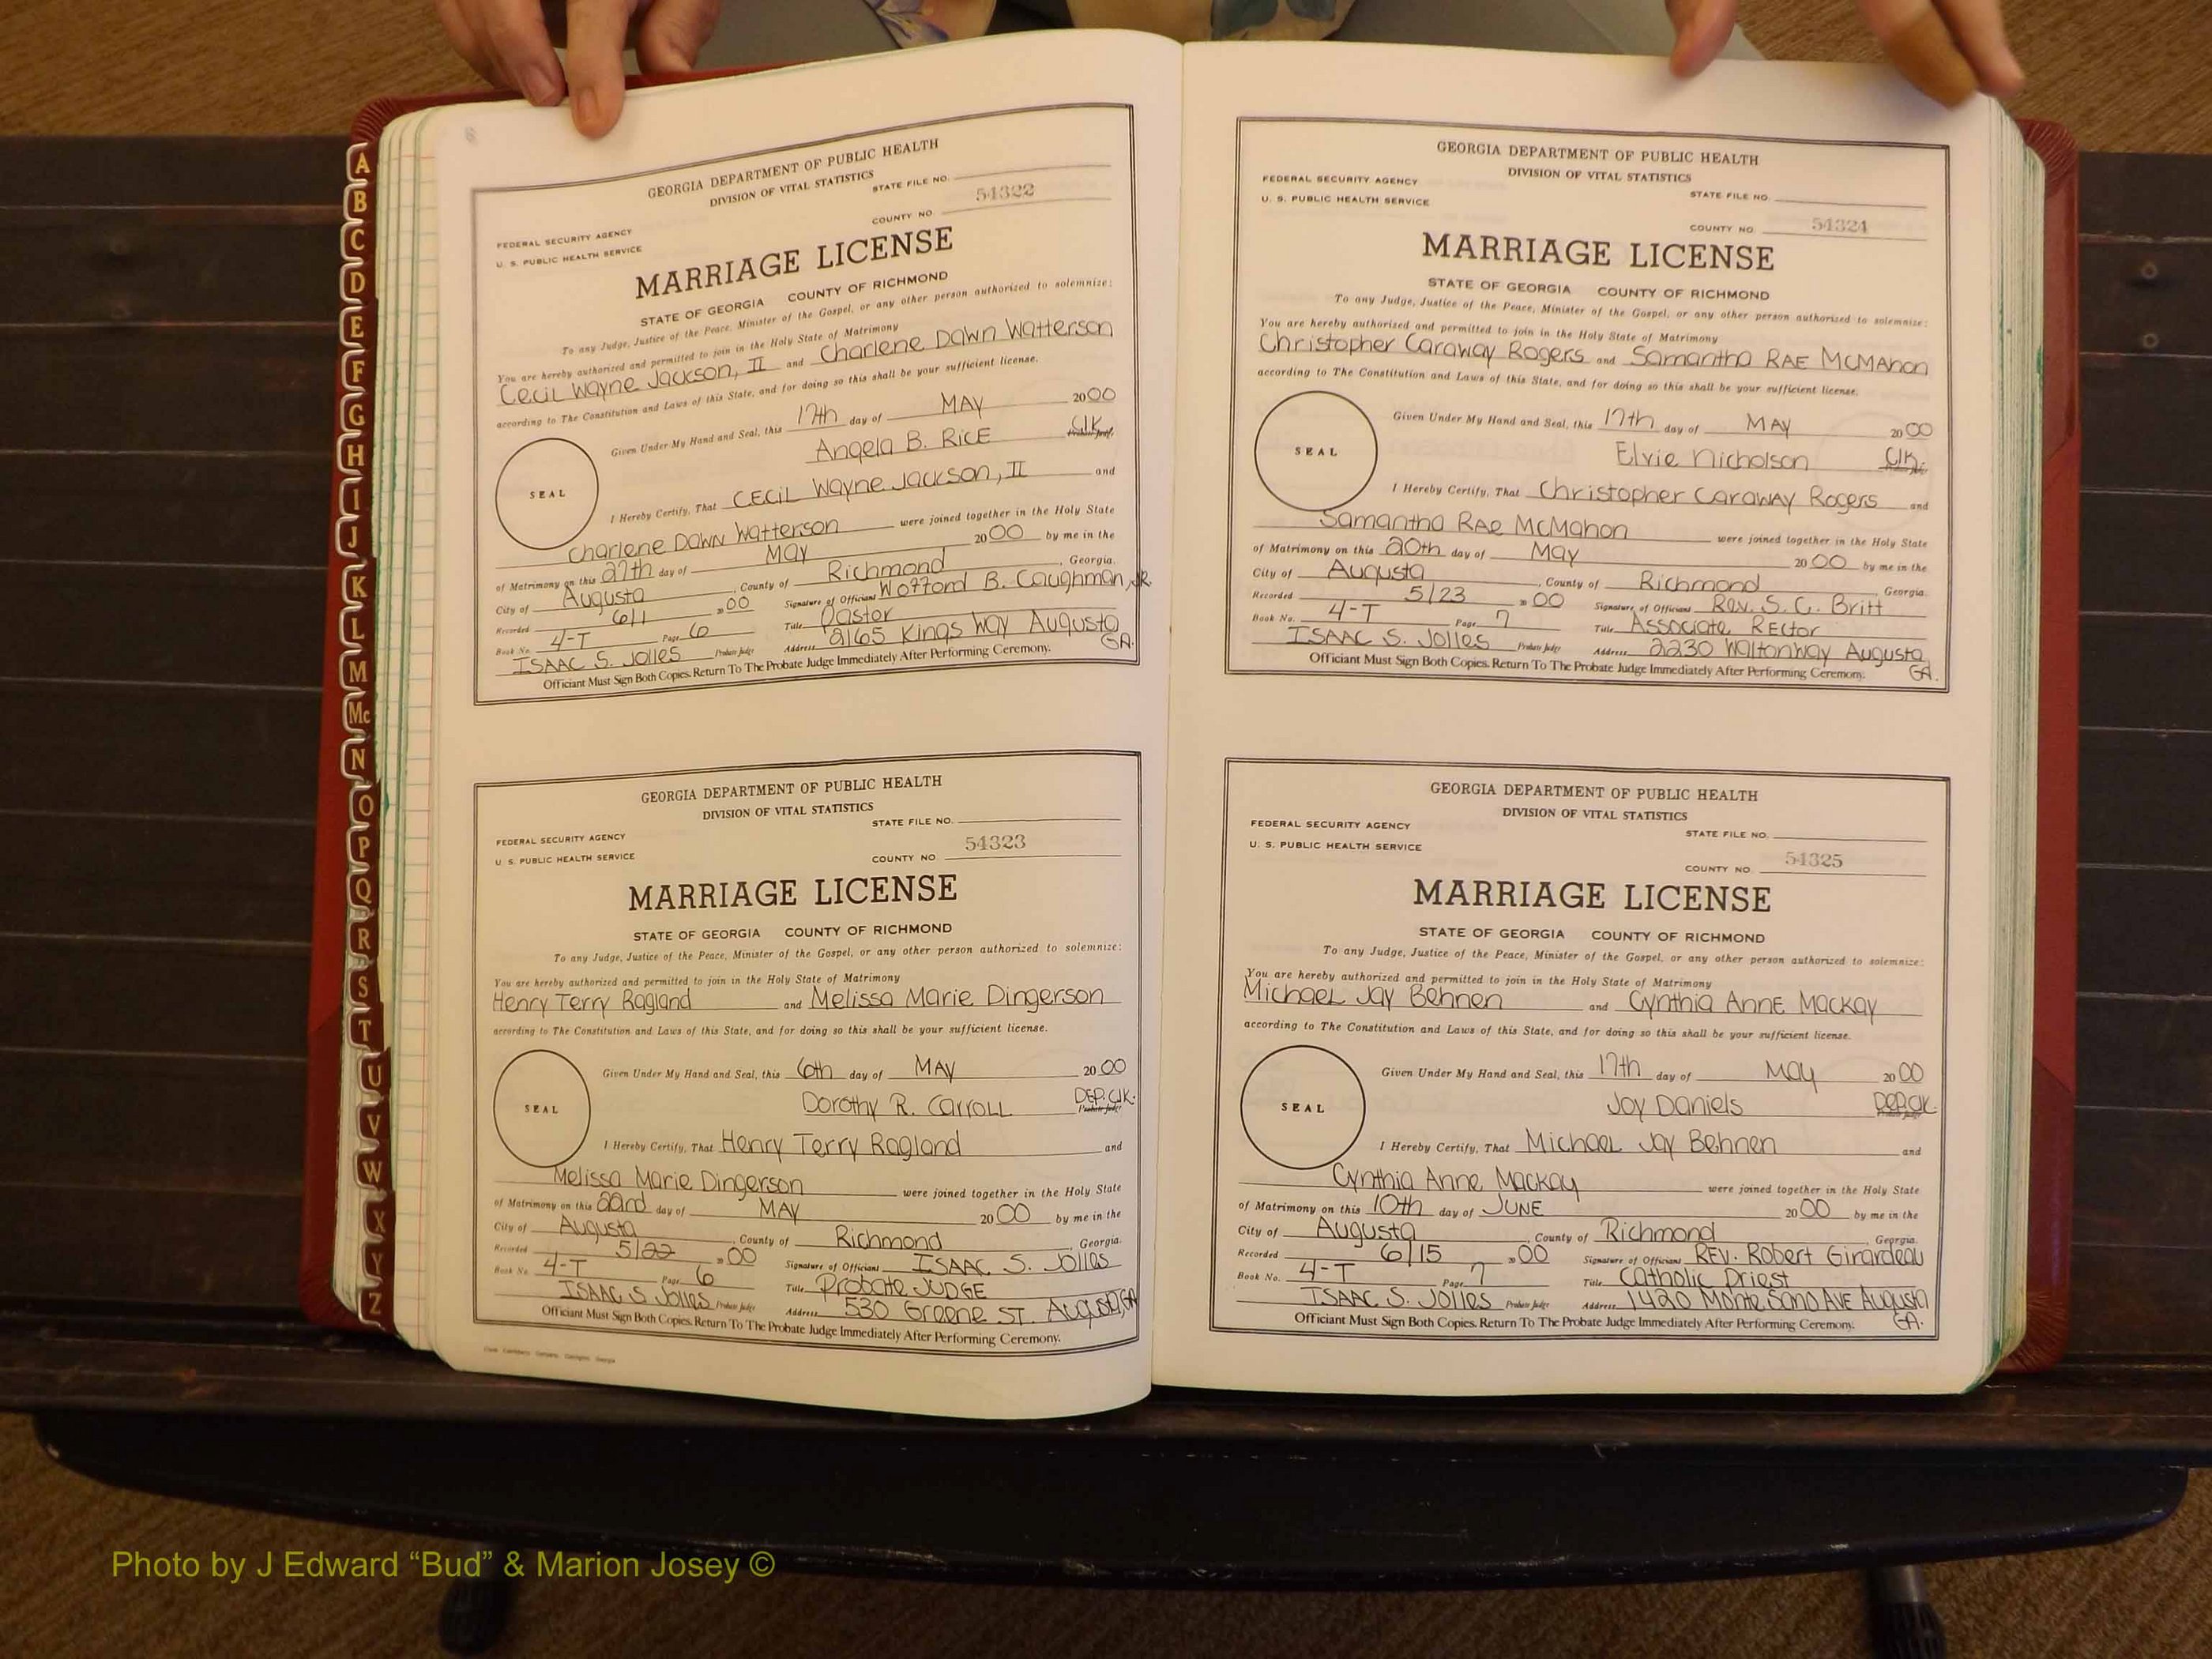 A
B
C
D
E
F
G
H
I
J
K
L
M
Mc
N
O
P
Q
R
S
T
U
V
W
X
Y
Z
GEORGIA DEPARTMENT OF PUBLIC HEALTH
DIVISION OF VITAL STATISTICS
STATE FILE NO.
54322
COUNTY NO
FEDERAL SECURITY AGENCY
U. S. PUBLIC HEALTH SERVICE
MARRIAGE LICENSE
STATE OF GEORGIA COUNTY OF RICHMOND
To any Judge, Justice of the Peace, Minister of the Gospel, or any other person authorized to solemnize:
You are hereby authorized and permitted to join in the Holy State of Matrimony
Cecil Wayne Jackson, II and Charlene Dawn Watterson
according to The Constitution and Laws of this State, and for doing so this shall be your sufficient license.
Given Under My Hand and Seal, this 17th day of MAY 2000
Angela B. Rice Clk.
SEAL
I Hereby Certify, That Cecil Wayne Jackson, II and
Charlene Dawn Watterson were joined together in the Holy State
of Matrimony on this 27th day of May 2000 by me in the
City of Augusta, County of Richmond, Georgia.
Recorded 6/1 2000 Signature of Officiant Wofford B. Caughman, JR.
Book No. 4-T Page 6 Title Pastor
ISAAC S. Jolles Probate Judge Address 2165 Kings Way Augusta GA.
Officiant Must Sign Both Copies. Return To The Probate Judge Immediately After Performing Ceremony.
GEORGIA DEPARTMENT OF PUBLIC HEALTH
DIVISION OF VITAL STATISTICS
STATE FILE NO.
FEDERAL SECURITY AGENCY
54323
U. S. PUBLIC HEALTH SERVICE COUNTY NO
MARRIAGE LICENSE
STATE OF GEORGIA COUNTY OF RICHMOND
To any Judge, Justice of the Peace, Minister of the Gospel, or any other person authorized to solemnize:
You are hereby authorized and permitted to join in the Holy State of Matrimony
Henry Terry Ragland and Melissa Marie Dingerson
according to The Constitution and Laws of this State, and for doing so this shall be your sufficient license.
Given Under My Hand and Seal, this 6th day of MAY 2000
Dorothy R. Carroll DEP. Clk.
SEAL Probate Judge
I Hereby Certify, That Henry Terry Ragland and
Melissa Marie Dingerson were joined together in the Holy State
of Matrimony on this 22rd day of MAY 2000 by me in the
City of Augusta, County of Richmond, Georgia.
Recorded 5/22 2000 Signature of Officiant ISAAC S. Jolles
Book No. 4-T Page 6 Title Probate JUDGE
ISAAC S. Jolles Probate Judge Address 530 Greene ST. Augusta, GA
Officiant Must Sign Both Copies. Return To The Probate Judge Immediately After Performing Ceremony.
GEORGIA DEPARTMENT OF PUBLIC HEALTH
FEDERAL SECURITY AGENCY DIVISION OF VITAL STATISTICS
U. S. PUBLIC HEALTH SERVICE STATE FILE NO.
COUNTY NO 54324
MARRIAGE LICENSE
STATE OF GEORGIA COUNTY OF RICHMOND
To any Judge, Justice of the Peace, Minister of the Gospel, or any other person authorized to solemnize:
You are hereby authorized and permitted to join in the Holy State of Matrimony
Christopher Caraway Rogers and Samantha RAE McMahon
according to The Constitution and Laws of this State, and for doing so this shall be your sufficient license.
Given Under My Hand and Seal, this 17th day of MAY 2000
SEAL Elvie Nicholson Clk.
I Hereby Certify, That Christopher Caraway Rogers and
Samantha RAE McMahon were joined together in the Holy State
of Matrimony on this 20th day of May 2000 by me in the
City of Augusta, County of Richmond Georgia.
Recorded 5/23 2000 Signature of Officiant Rev. S. C. Britt
Book No. 4-T Page 7 Title Associate Rector
ISAAC S. Jolles Probate Judge Address 2230 Walton Way Augusta GA.
Officiant Must Sign Both Copies. Return To The Probate Judge Immediately After Performing Ceremony.
GEORGIA DEPARTMENT OF PUBLIC HEALTH
FEDERAL SECURITY AGENCY DIVISION OF VITAL STATISTICS
U. S. PUBLIC HEALTH SERVICE STATE FILE NO.
COUNTY NO. 54325
MARRIAGE LICENSE
STATE OF GEORGIA COUNTY OF RICHMOND
To any Judge, Justice of the Peace, Minister of the Gospel, or any other person authorized to solemnize:
You are hereby authorized and permitted to join in the Holy State of Matrimony
Michael Jay Behnen and Cynthia Anne Mackay
according to The Constitution and Laws of this State, and for doing so this shall be your sufficient license.
Given Under My Hand and Seal, this 17th day of May 2000
SEAL Joy Daniels DEP. Clk.
I Hereby Certify, That Michael Jay Behnen and
Cynthia Anne Mackay were joined together in the Holy State
of Matrimony on this 10th day of JUNE 2000 by me in the
City of Augusta, County of Richmond, Georgia.
Recorded 6/15 2000 Signature of Officiant REV. Robert Girardeau
Book No. 4-T Page 7 Title Catholic Priest
ISAAC S. Jolles Probate Judge Address 1420 Monte Sano AVE Augusta GA.
Officiant Must Sign Both Copies. Return To The Probate Judge Immediately After Performing Ceremony.
Photo by J Edward “Bud” & Marion Josey ©